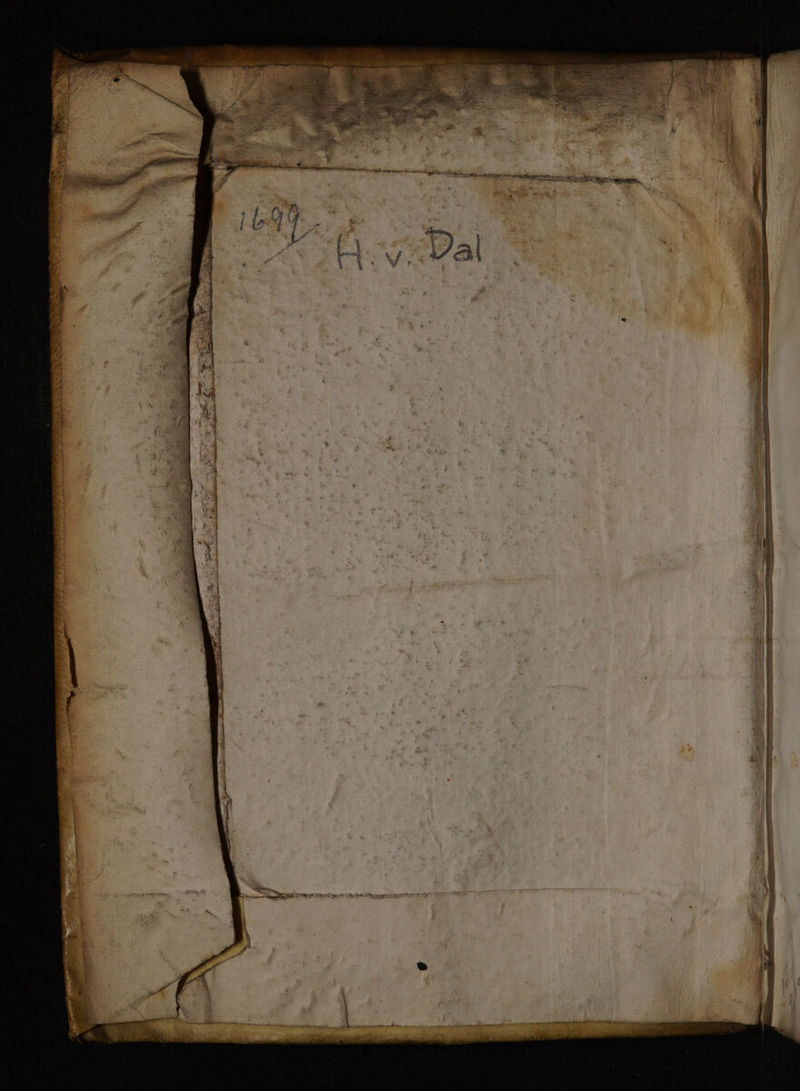 1699
H. v. Dal